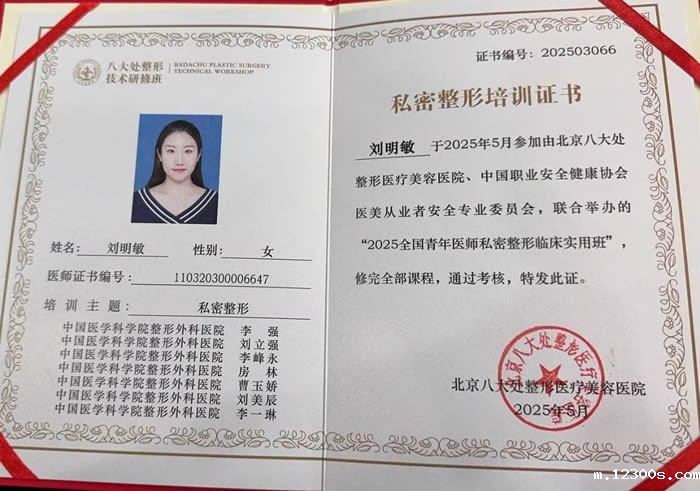 八大处整形
技术研修班
BADACHU PLASTIC SURGERY
TECHNICAL WORKSHOP
姓名: 刘明敏 性别: 女
医师证书编号: 110320300006647
培训主题: 私密整形
中国医学科学院整形外科医院 李 强
中国医学科学院整形外科医院 刘立强
中国医学科学院整形外科医院 李峰永
中国医学科学院整形外科医院 房 林
中国医学科学院整形外科医院 曹玉娇
中国医学科学院整形外科医院 刘美辰
中国医学科学院整形外科医院 李一琳
证书编号: 202503066
私密整形培训证书
刘明敏 于2025年5月参加由北京八大处
整形医疗美容医院、中国职业安全健康协会
医美从业者安全专业委员会,联合举办的
“2025全国青年医师私密整形临床实用班”,
修完全部课程,通过考核,特发此证。
北京八大处整形医疗
北京八大处整形医疗美容医院
2025年5月
m.12300s.com